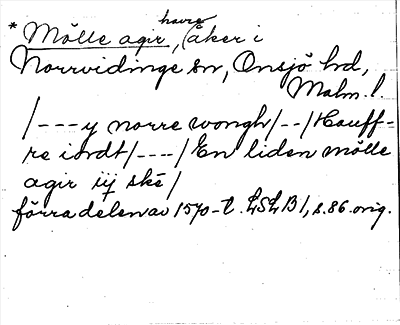 * Mölle agir, (havre) åker i
Norrvidinge sn, Onsjö hd,
Malm. l.
/---y norre wongh/--/Hauff=
re iordt/----/En liden mölle
agir iij ske/
förra delen av 1570-t. LSLB 1, s. 86. orig.